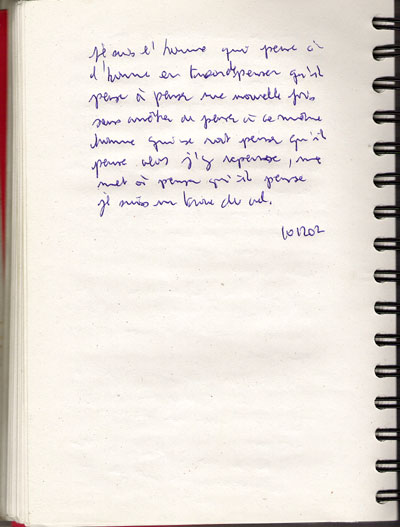 je suis l'homme qui pense à
l'homme en train de penser qu'il
pense à penser une nouvelle fois
sans arrêter de penser à ce même
homme qui se voit penser qu'il
pense alors j'y repense, me
met à penser qu'il pense
je suis un du
101202